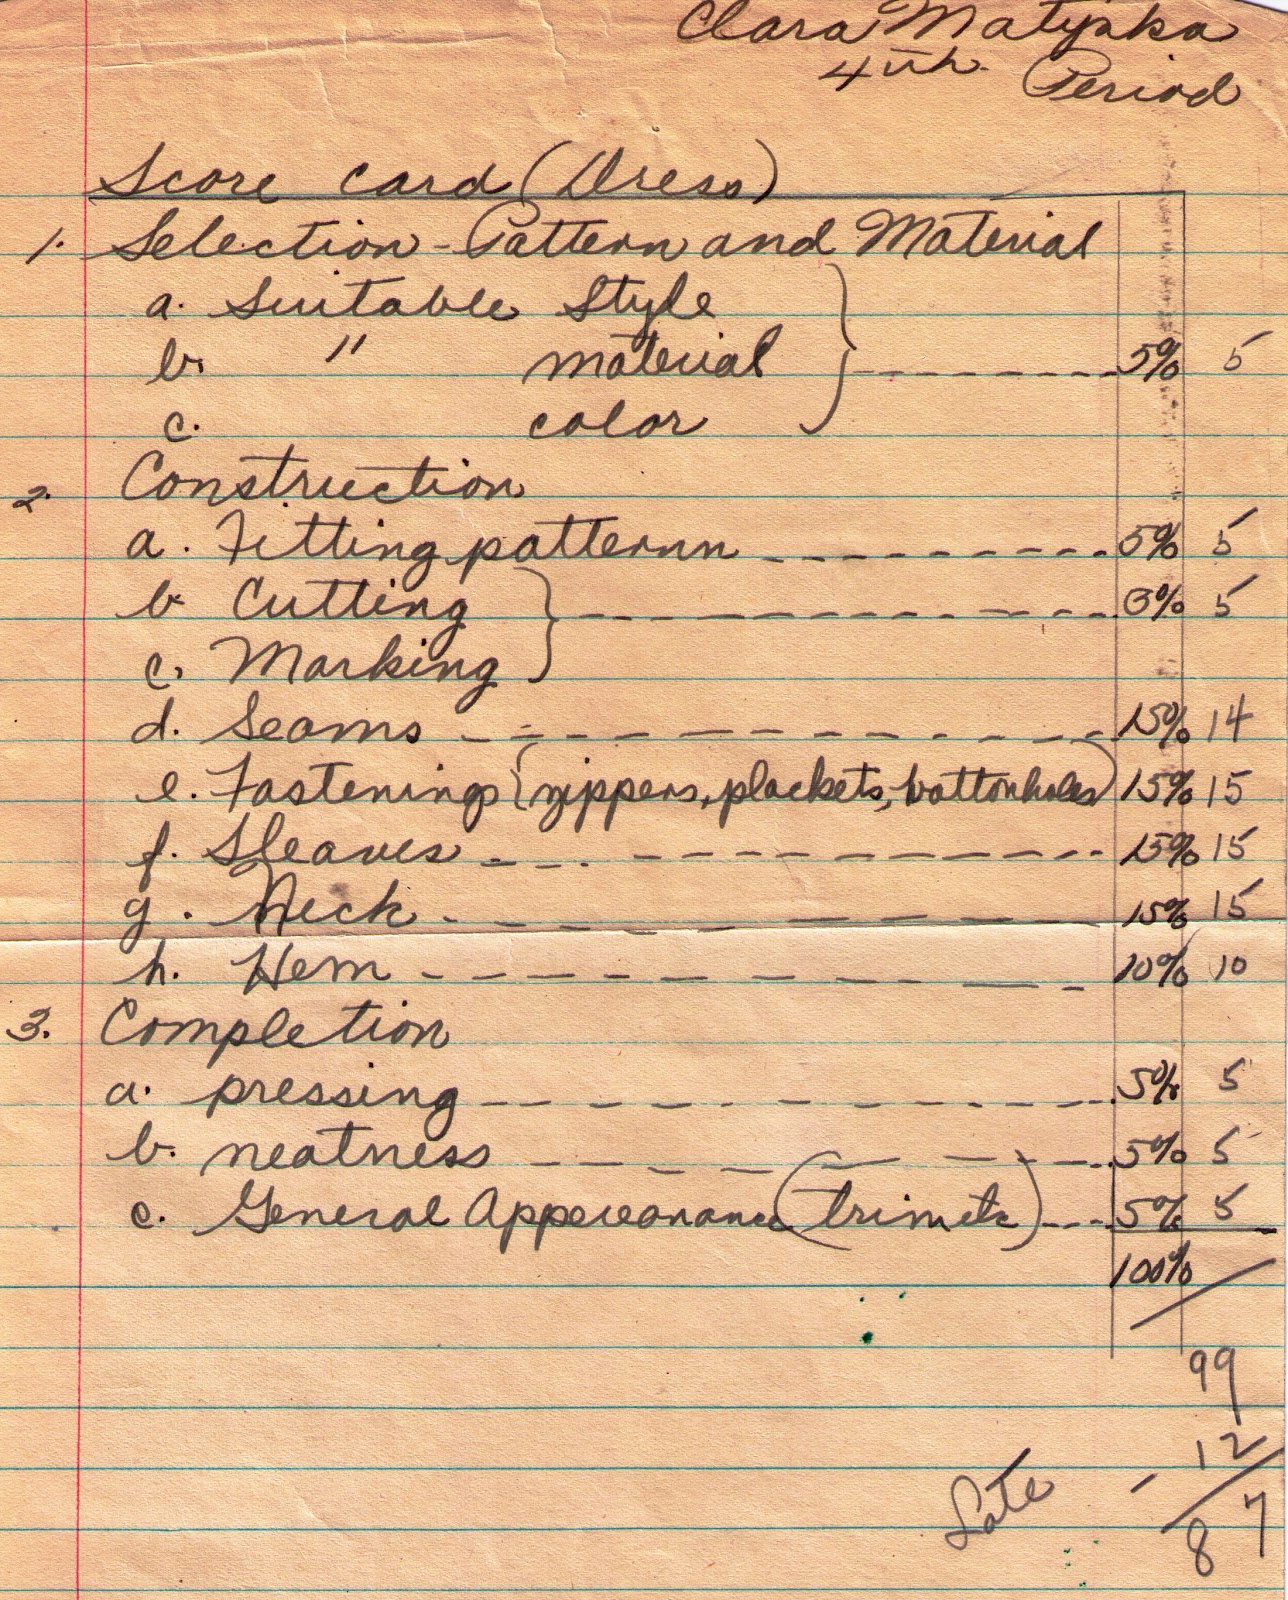 Clara Matyska
4th Period
Score card (Dress)
1. Selection - Pattern and Material
a. Suitable Style
b. " material } 5% 5
c. color
2. Construction
a. Fitting patternn 5% 5
b. Cutting } 5% 5
c. Marking
d. Seams 15% 14
e. Fastenings (zippers, plackets, bottonholes) 15% 15
f. Sleaves 15% 15
g. Neck 15% 15
h. Hem 10% 10
3. Completion
a. pressing 5% 5
b. neatness 5% 5
c. General (trim etc) 5% 5
100%
99
Late - 12
87